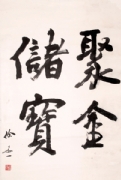 聚金
儲寶